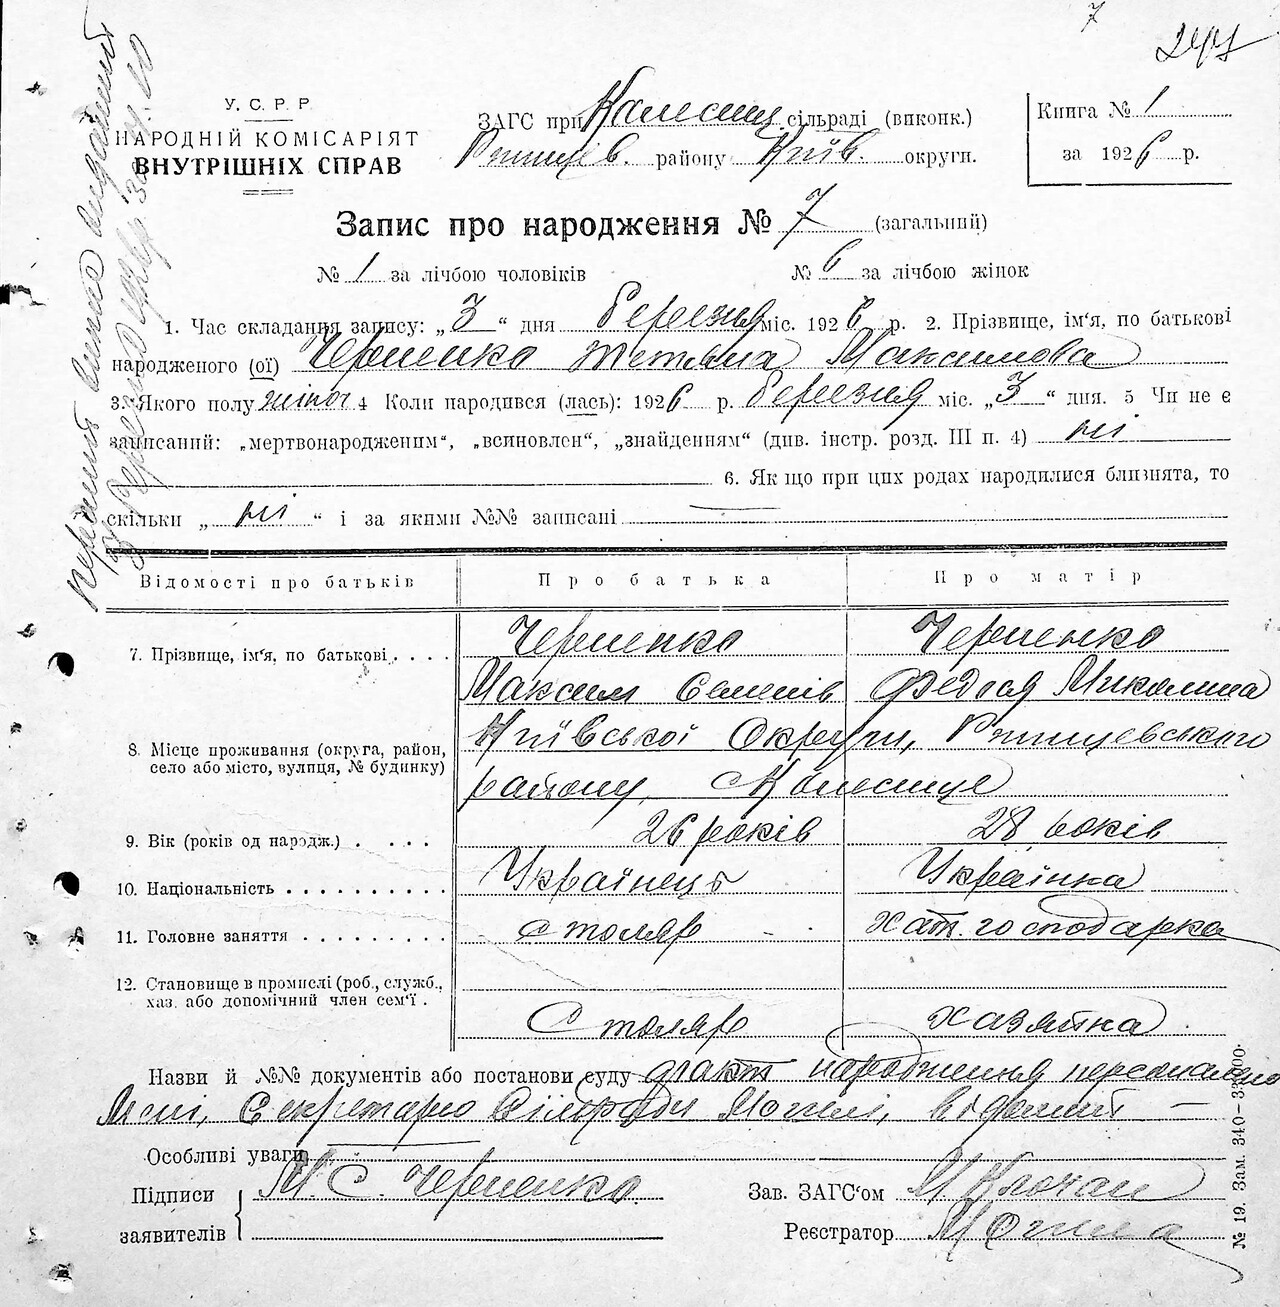 7
247
У. С. Р. Р.
НАРОДНІЙ КОМІСАРІЯТ
ВНУТРІШНІХ СПРАВ
ЗАГС при сільраді (виконк.)
Ртищев. району Київ. округи.
Книга № 1
за 1926 р.
Запис про народження № 7 (загальний)
№ 1 за лічбою чоловіків № 6 за лічбою жінок
1. Час складання запису: „ 3 “ дня березня міс. 1926 р. 2. Прізвище, ім'я, по батькові
народженого (ої) Черненко Тетяна Максимова
3. Якого полу жіноч 4 Коли народився (лась): 1926 р. березня міс. „ 3 “ дня. 5 Чи не є
записаний: „мертвонародженим“, „всиновлен“, „знайденням“ (див. інстр. розд. III п. 4) ні
6. Як що при цих родах народилися близнята, то
скільки „ ні “ і за якими №№ записані —
Відомості про батьків Про батька Про матір
7. Прізвище, ім'я, по батькові . . . . Черненко Черненко
Максим Семенів Федося Миколина
8. Місце проживання (округа, район, село або місто, вулиця, № будинку) Київської Округи, Ртищевського
району, с
9. Вік (років од народж.) . . . . 26 років 28 років
10. Національність . . . . . . . . . . Українець Українка
11. Головне заняття . . . . . . . . . Столяр хат. господарка
12. Становище в промислі (роб., служб.,
хаз. або допомічний член сем'ї . Столяр хазяйка
Назви й №№ документів або постанови суду факт народження персонально
мені, Секретарю Сільради Могилі, відомий —
Особливі уваги
Підписи заявителів М. С. Черненко
Зав. ЗАГС'ом М Клочан
Реєстратор Могила
№ 19. Зам. 340—33000.